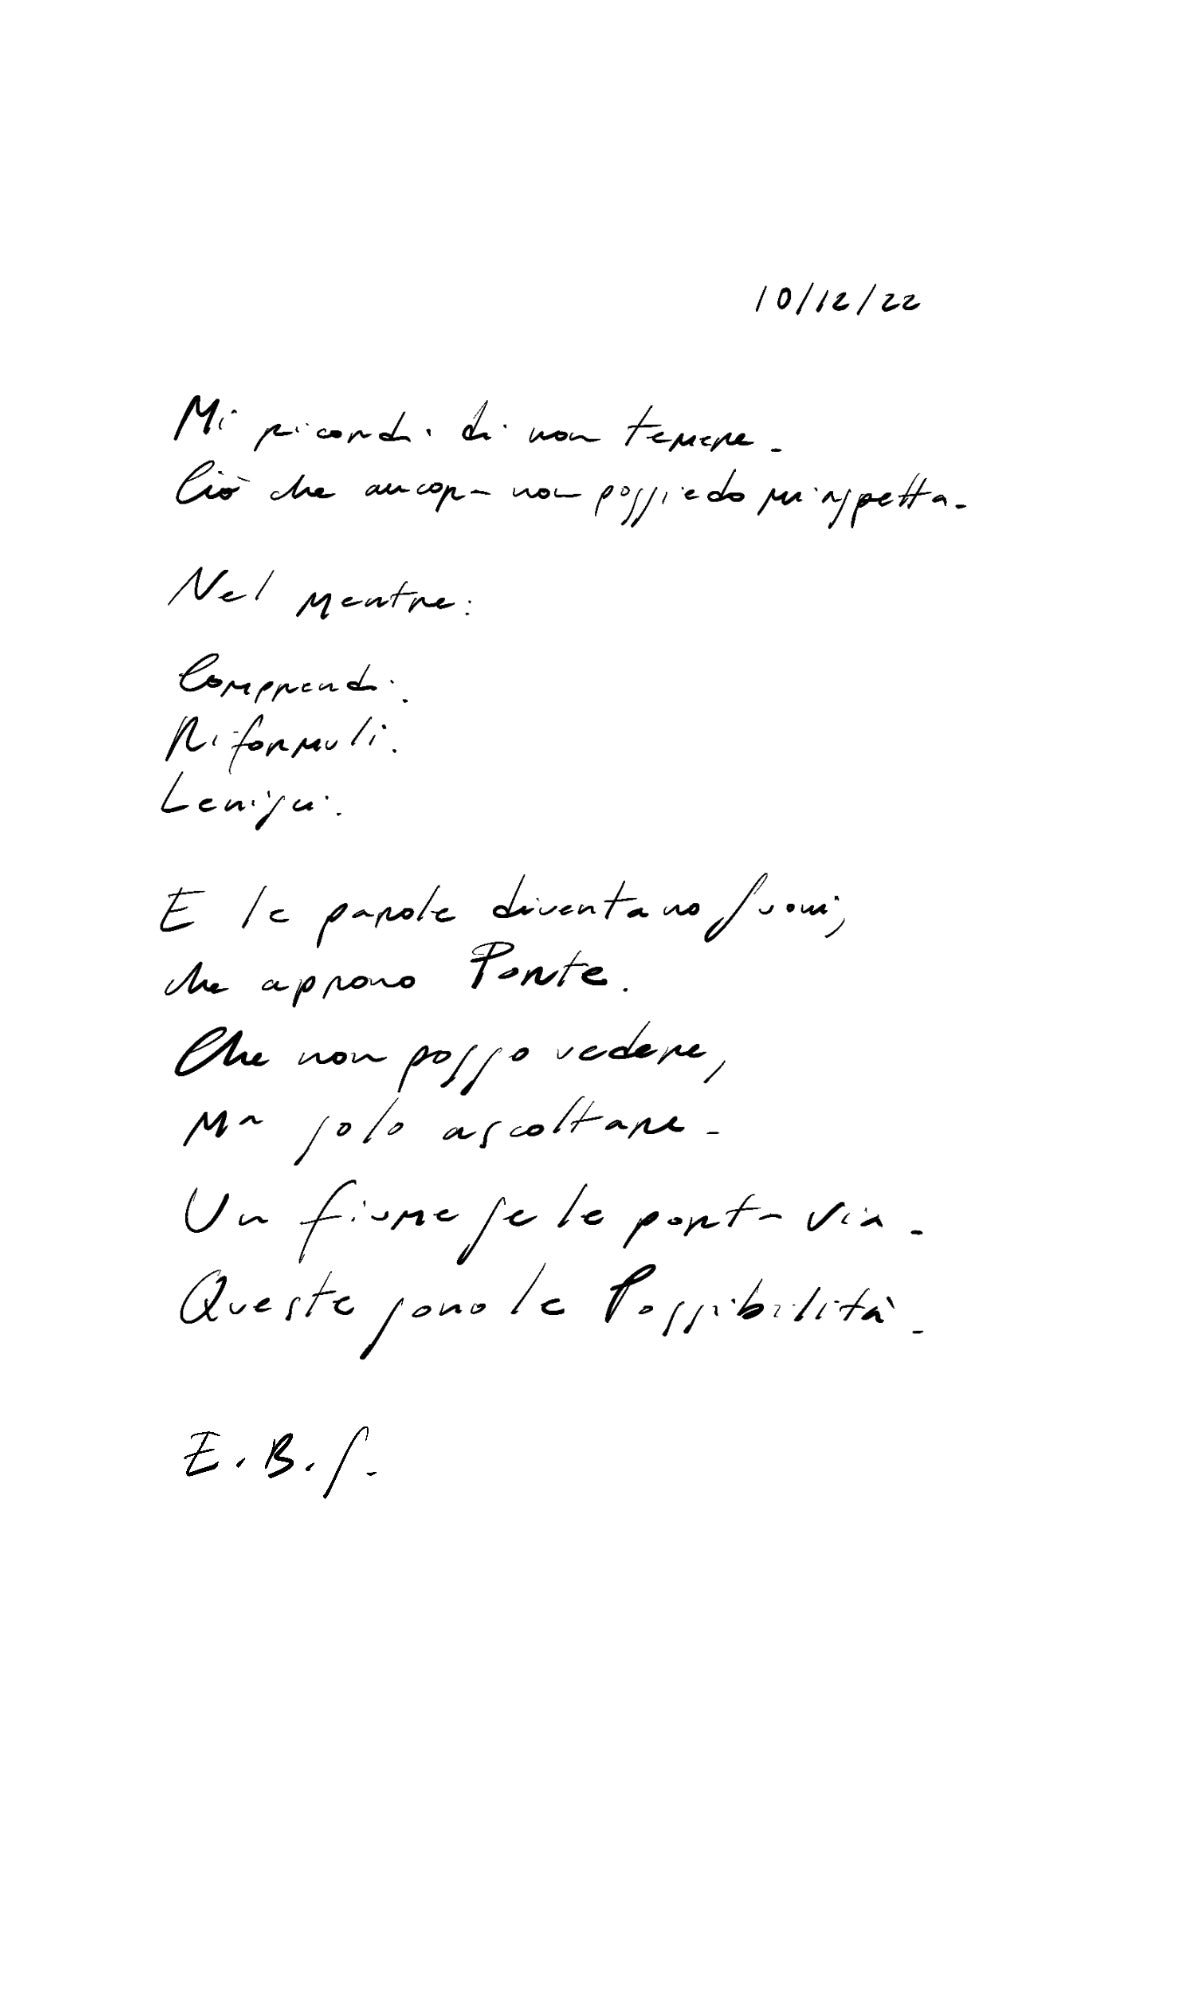 10/12/22
Mi ricordi di non temere.
Ciò che ancora non possiedo mi aspetta.
Nel mentre:
Comprendi.
Riformuli.
Lenisci.
E le parole diventano suoni,
che aprono Porte.
Che non posso vedere,
Ma solo ascoltare.
Un fiume se le porta via.
Queste sono le Possibilità.
E.B.S.